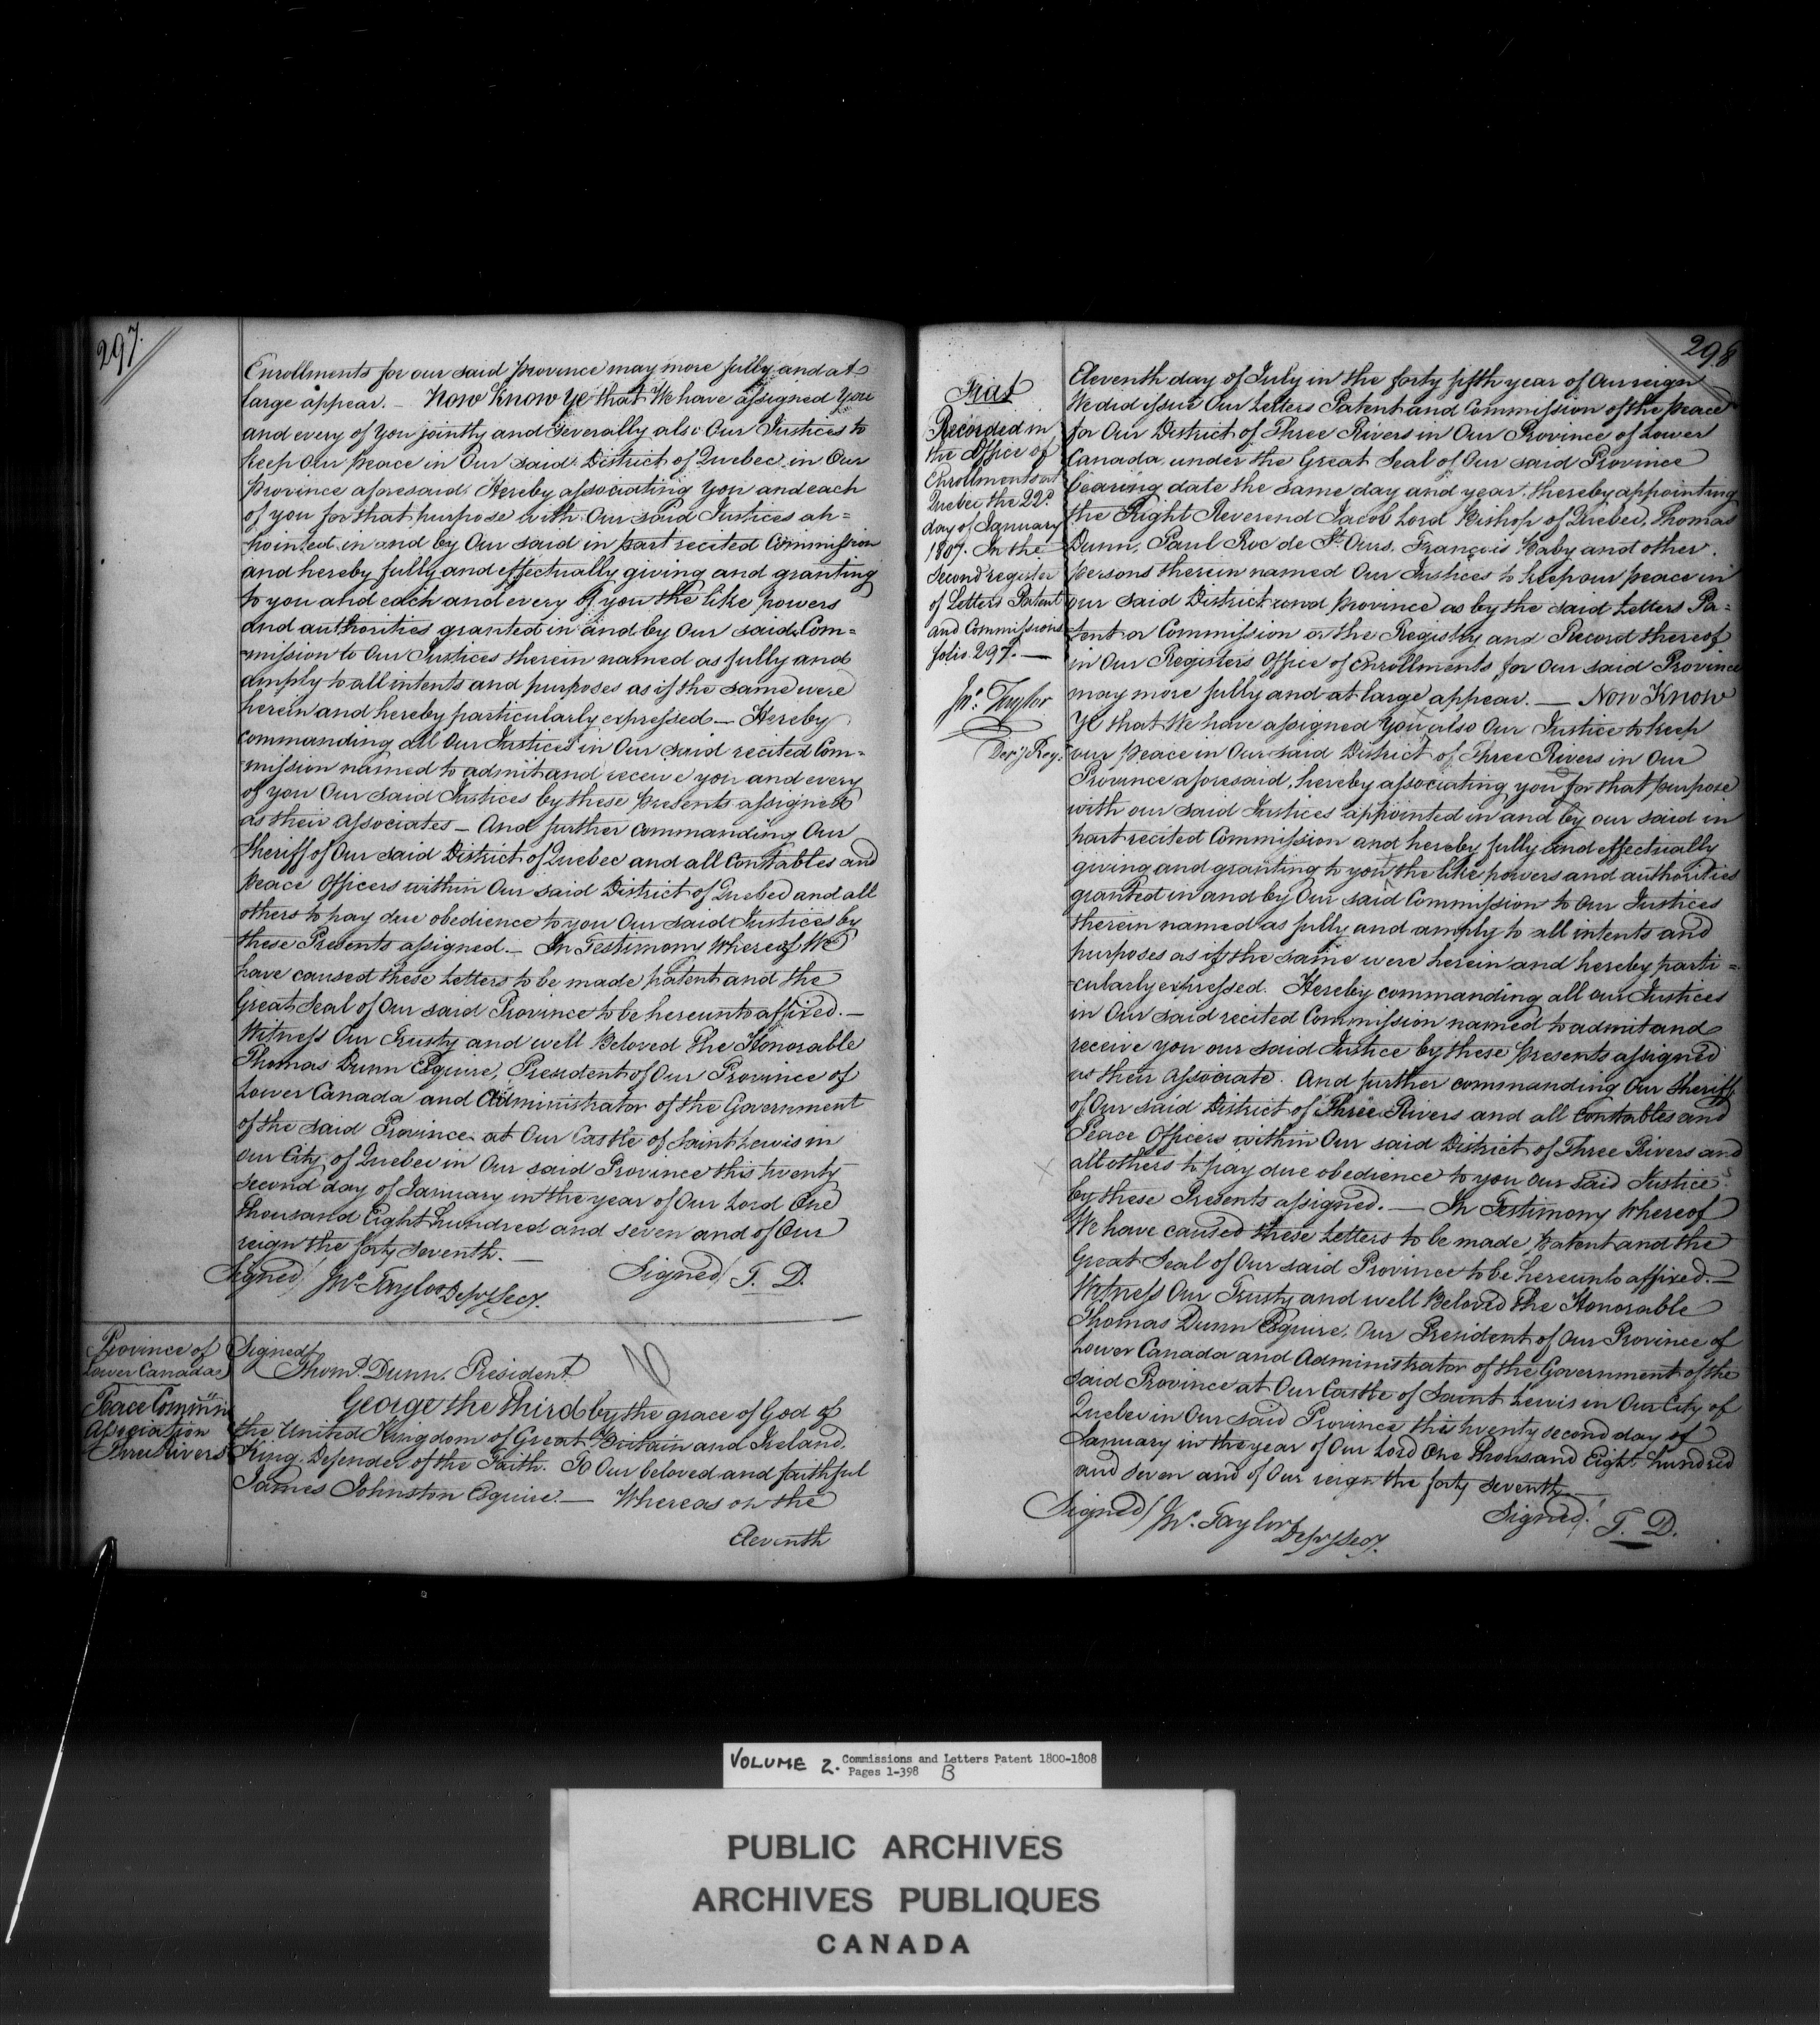 297.
Enrollments for our said province may more fully and at
large appear. — Now Know Ye that We have assigned You
and every of you jointly and severally also Our Justices to
keep our peace in Our said District of Quebec in Our
Province aforesaid. Hereby associating you and each
of you for that purpose with Our said Justices ap=
pointed in and by Our said in part recited Commission
and hereby fully and effectually giving and granting
to you and each and every of you the like powers
and authorities granted in and by Our said Com=
=mission to Our Justices therein named as fully and
amply to all intents and purposes as if the same were
herein and hereby particularly expressed — Hereby
commanding all Our Justices in Our said recited Com=
=mission named to admit and receive you and every
of you Our said Justices by these presents assigned
as their associates — And further commanding Our
Sheriff of Our said District of Quebec and all Constables and
peace Officers within Our said District of Quebec and all
others to pay due obedience to you Our said Justices by
these Presents assigned. — In Testimony Whereof We
have caused these Letters to be made patent and the
Great Seal of Our said Province to be hereunto affixed. —
Witness Our Trusty and well Beloved The Honorable
Thomas Dunn Esquire, President of Our Province of
Lower Canada and Administrator of the Government
of the said Province at Our Castle of Saint Lewis in
our City of Quebec in Our said Province this twenty
second day of January in the year of Our Lord One
thousand Eight hundred and seven and of Our
reign the forty seventh. —
Signed/ Jno. Taylor Depy Secy. Signed/ T. D.
Province of
Lower Canada
Peace Commn
Association
Three Rivers
Signed/
Thoms. Dunn, President
George the Third by the grace of God of
the United Kingdom of Great Britain and Ireland,
King, Defender of the Faith. To Our beloved and faithful
James Johnston Esquire. — Whereas on the
Eleventh
298
Fiat
Recorded in
the Office of
Enrollments at
Quebec the 22d.
day of January
1807. In the
second register
of Letters Patent
and Commissions
folio 297. —
Jno. Taylor
Depy Reg.
Eleventh day of July in the forty fifth year of Our reign
We did issue Our Letters Patent and Commission of the peace
for Our District of Three Rivers in Our Province of Lower
Canada under the Great Seal of Our said Province
bearing date the same day and year, thereby appointing
the Right Reverend Jacob Lord Bishop of Quebec, Thomas
Dunn, Paul Roc de St. Ours, François Baby and other
persons therein named Our Justices to keep our peace in
our said District and province as by the said Letters Pa=
=tent or Commission or the Registry and Record thereof
in Our Registers Office of Enrollments for Our said Province
may more fully and at large appear. — Now Know
Ye that We have assigned You also Our Justice to keep
our peace in Our said District of Three Rivers in Our
Province aforesaid, hereby associating you for that purpose
with our said Justices appointed in and by our said in
part recited Commission and hereby fully and effectually
giving and granting to you the like powers and authorities
granted in and by Our said Commission to Our Justices
therein named as fully and amply to all intents and
purposes as if the same were herein and hereby parti=
=cularly expressed. Hereby commanding all our Justices
in Our said recited Commission named to admit and
receive you our said Justice by these presents assigned
as their associate. And further commanding Our Sheriff
of Our said District of Three Rivers and all Constables and
Peace Officers within Our said District of Three Rivers and
all others to pay due obedience to you our said Justice
by these Presents assigned. — In Testimony Whereof
We have caused these Letters to be made patent and the
Great Seal of Our said Province to be hereunto affixed. —
Witness Our Trusty and well Beloved The Honorable
Thomas Dunn Esquire, Our President of Our Province of
Lower Canada and Administrator of the Government of the
said Province at Our Castle of Saint Lewis in Our City of
Quebec in Our said Province this twenty second day of
January in the year of Our Lord One thousand Eight hundred
and seven and of Our reign the forty seventh —
Signed/ Jno. Taylor Depy Secy. Signed/ T. D.
VOLUME 2. Commissions and Letters Patent 1800-1808
Pages 1-398 B
PUBLIC ARCHIVES
ARCHIVES PUBLIQUES
CANADA